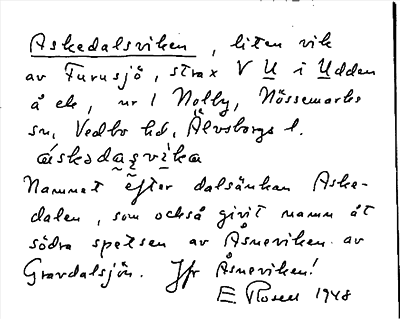 Askedalsviken, liten vik
av Furusjö, strax V U i Udden
å ek, nr 1 Nolby, Nössemarks
sn, Vedbo hd, Älvsborgs l.
áskədaʂvìka
Namnet efter dalsänkan Aske-
dalen, som också givit namn åt
södra spetsen av Åsneviken av
Gravdalsjön. Jfr Åsneviken!
E. Rosell 1948